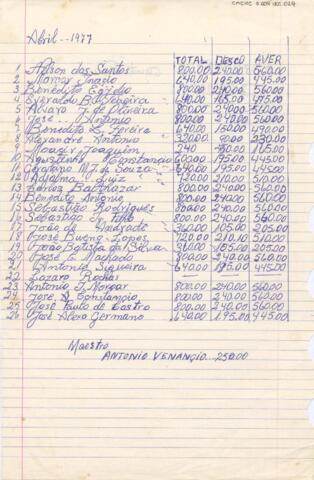 Abril..1977
TOTAL DESCO AVER
1 dos Santos 800.00 240.00 560.00
2 640.00 195.00 445.00
3 Benedito Egidio 800.00 240.00 560.00
4 640.00 165.00 475.00
5 Alvaro J. de Oliveira 800.00 240.00 560.00
6 José.. Antonio 800.00 240.00 560.00
7 Benedito 640.00 150.00 490.00
8 Alexandre Antonio 320.00 90.00 230.00
9 Moacir Joaquim 240
10 Agustinho Constancio 600.00 195.00 445.00
11 M. J. de Souza 640.00 195.00 445.00
12 Luiz 210.00 510.00
13 Carlos Balthazar 800.00 240.00 560.00
14 Benedito Antonio 800.00 240.00 560.00
15 Sebastião Rodrigues 800.00 240.00 560.00
16 Sebastião 800.00 240.00 560.00
17 João de Andrade 360.00 105.00 205.00
18 José Bueno Lopes 720.00 210.00 510.00
19 João Batista da Silva 310.00 105.00 205.00
20 José Machado 800.00 240.00 560.00
21 Antonio Siqueira 640.00 195.00 445.00
22 Lazaro Rocha
23 Antonio 800.00 240.00 560.00
24 José A. Constancio 800.00 240.00 560.00
25 José de Castro 800.00 240.00 560.00
26 José Germano 640.00 195.00 445.00
Maestro
ANTONIO VENANCIO... 250.00